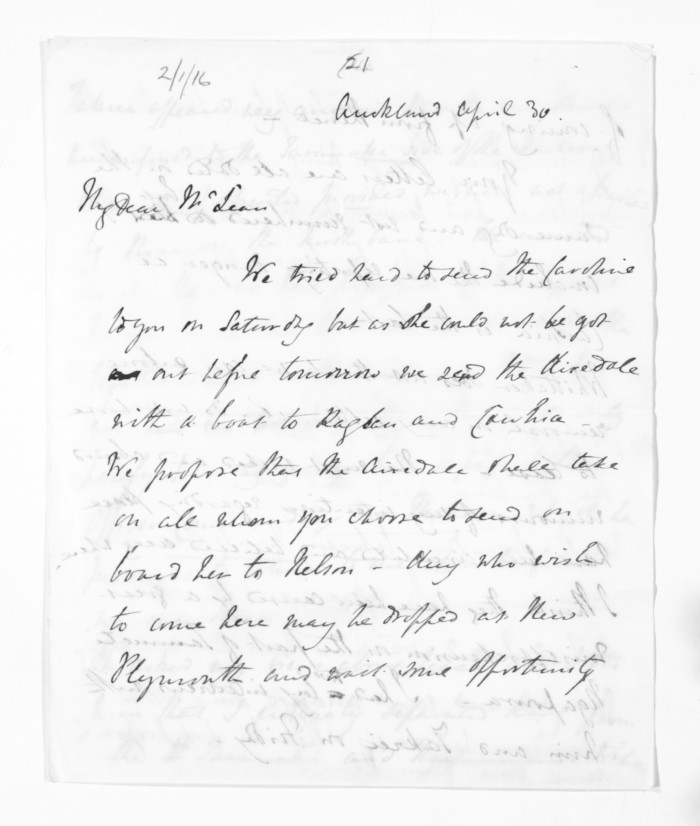 2/1/16
21
Auckland April 30.
My Dear McLean
We tried hard to send the Caroline
to you on Saturday but as she could not be got
out before tomorrow we send the Airedale
with a boat to Raglan and Kawhia
We propose that the Airedale shall take
on all whom you choose to send on
board her to Nelson - Any who wish
to come here may be dropped at New
Plymouth and wait some opportunity